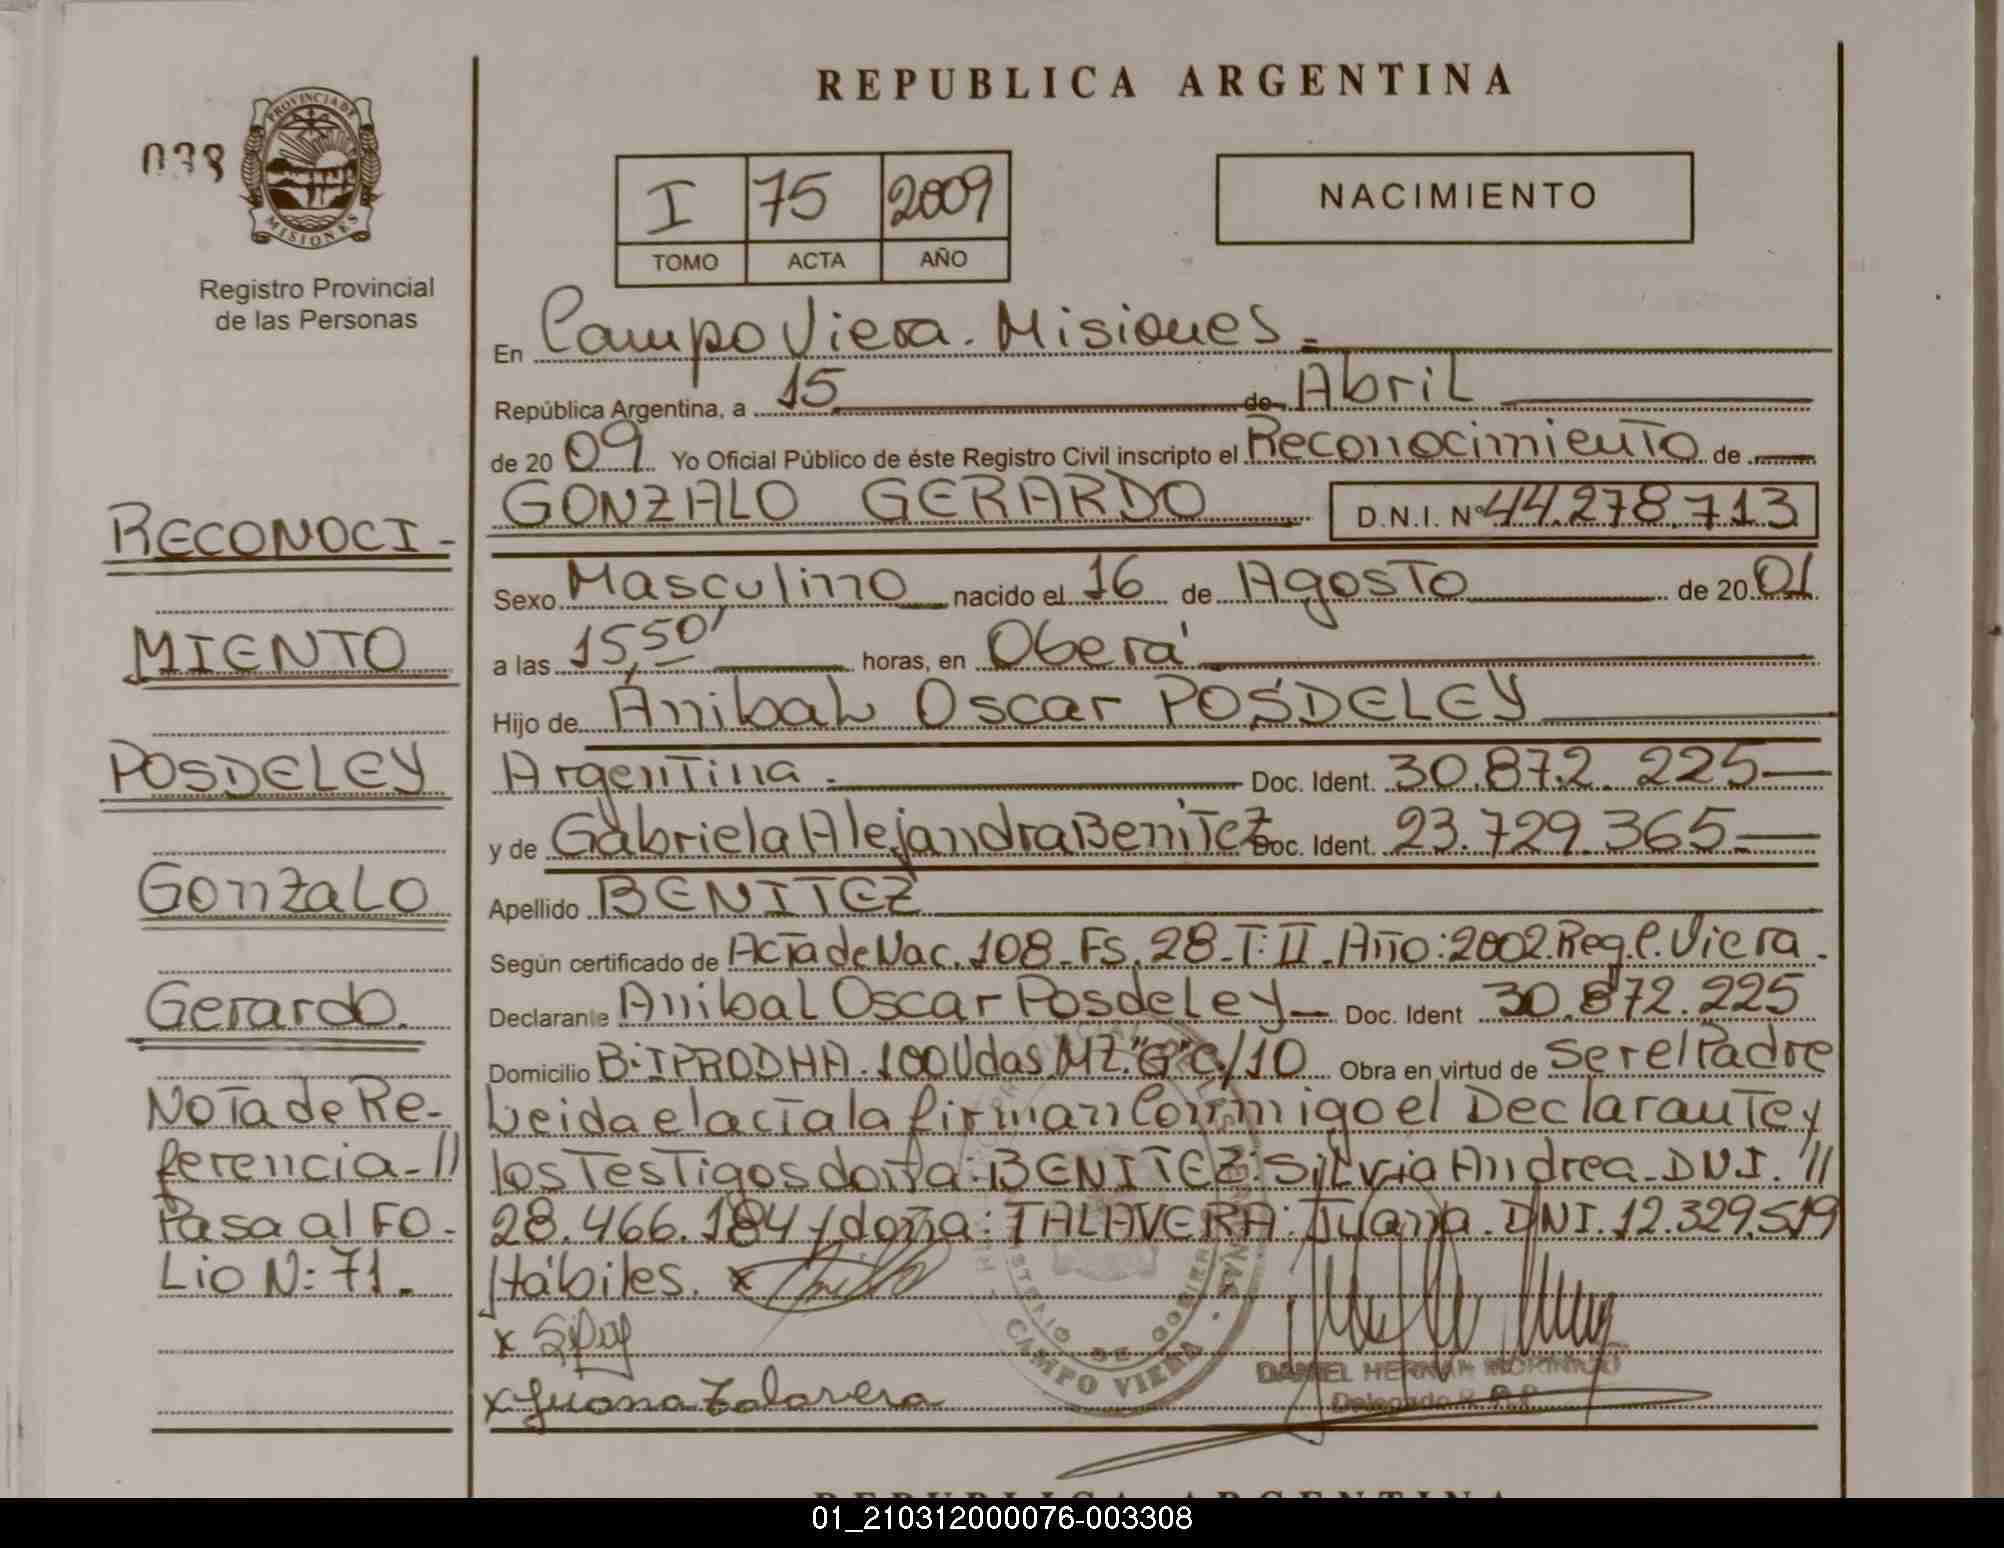 REPUBLICA ARGENTINA
038
PROVINCIA DE
MISIONES
Registro Provincial
de las Personas
I 75 2009
TOMO ACTA AÑO
NACIMIENTO
En Campo Viera. Misiones.=
República Argentina, a 15 de Abril
de 20 09 Yo Oficial Público de éste Registro Civil inscripto el Reconocimiento de
GONZALO GERARDO D.N.I. Nº 44.278.713
Sexo Masculino nacido el 16 de Agosto de 20 01
a las 15,50' horas, en Oberá
Hijo de Anibal Oscar POSDELEY
Argentina.- Doc. Ident. 30.872.225
y de Gabriela Alejandra Benitez Doc. Ident. 23.729.365
Apellido BENITEZ
Según certificado de Acta de Nac. 108-Fs. 28-T: II-Año: 2002. Reg. C. Viera.
Declarante Anibal Oscar Posdeley Doc. Ident 30.872.225
Domicilio B: IPRODHA. 100 Vdas. MZ. "G" C/10 Obra en virtud de Ser el Padre
Leida el acta la firman Conmigo el Declarante y
los Testigos doña: BENITEZ: Silvia Andrea-DNI. //
28.466.184 y doña: TALAVERA: Juana. DNI. 12.329.519
Hábiles. x
x
x Juana Talavera
RECONOCI-
MIENTO
POSDELEY
Gonzalo
Gerardo.
Nota de Re-
ferencia-//
Pasa al FO-
Lio N: 71.
MINISTERIO DE GOBIERNO
CAMPO VIERA
DANIEL HERNAN
Delegado R.P.P.
REPUBLICA ARGENTINA
01_210312000076-003308